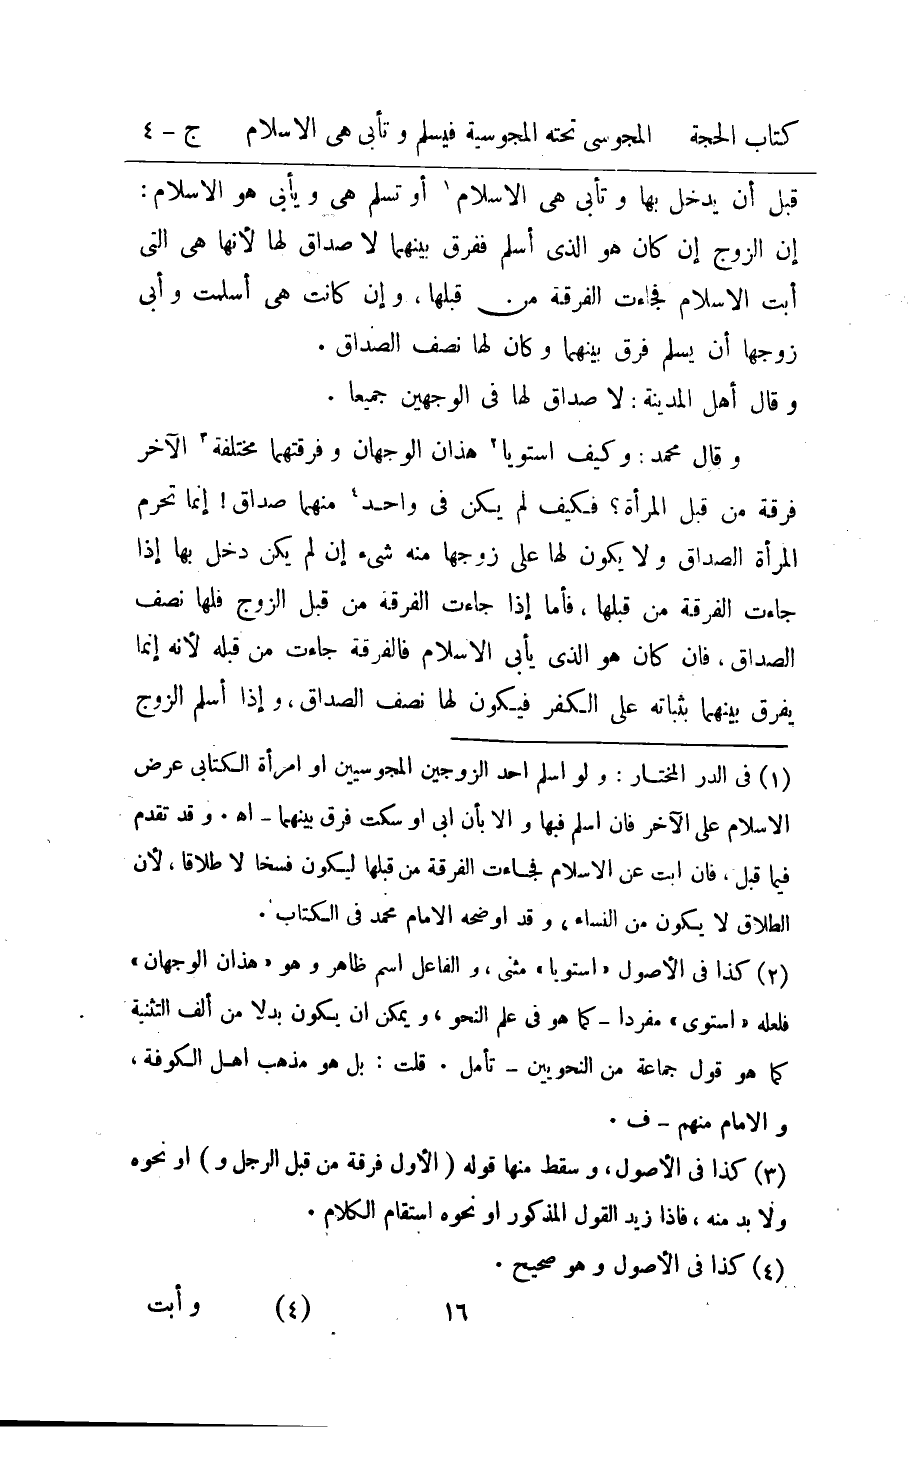 كتاب الحجة المجوسى تحته المجوسية فيسلم و تأبى هى الاسلام ج - ٤
قبل أن يدخل بها و تأبى هى الاسلام ١ أو تسلم هى و يأبى هو الاسلام :
إن الزوج إن كان هو الذى أسلم ففرق بينهما لا صداق لها لأنها هى التى
أبت الاسلام فجاءت الفرقة من قبلها ، و إن كانت هى أسلمت و أبى
زوجها أن يسلم فرق بينهما و كان لها نصف الصداق .
و قال أهل المدينة : لا صداق لها فى الوجهين جميعا .
و قال محمد : و كيف استويا ٢ هذان الوجهان و فرقتهما مختلفة ٣ الآخر
فرقة من قبل المرأة ؟ فكيف لم يكن فى واحد ٤ منهما صداق ! إنما تحرم
المرأة الصداق و لا يكون لها على زوجها منه شىء إن لم يكن دخل بها إذا
جاءت الفرقة من قبلها ، فأما إذا جاءت الفرقة من قبل الزوج فلها نصف
الصداق ، فان كان هو الذى يأبى الاسلام فالفرقة جاءت من قبله لأنه إنما
يفرق بينهما بثباته على الكفر فيكون لها نصف الصداق ، و إذا أسلم الزوج
(١) فى الدر المختار : و لو اسلم احد الزوجين المجوسيين او امرأة الكتابى عرض
الاسلام على الآخر فان اسلم فبها و الا بأن ابى او سكت فرق بينهما - اه . و قد تقدم
فيما قبل ، فان ابت عن الاسلام فجاءت الفرقة من قبلها ليكون فسخا لا طلاقا ، لأن
الطلاق لا يكون من النساء ، و قد اوضحه الامام محمد فى الكتاب .
(٢) كذا فى الأصول « استويا » مثنى ، و الفاعل اسم ظاهر و هو « هذان الوجهان »
فلعله « استوى » مفردا - كما هو فى علم النحو ، و يمكن ان يكون بدلا من ألف التثنية
كما هو قول جماعة من النحويين - تأمل . قلت : بل هو مذهب اهل الكوفة ،
و الامام منهم - ف .
(٣) كذا فى الأصول ، و سقط منها قوله ( الأول فرقة من قبل الرجل و ) او نحوه
ولا بد منه ، فاذا زيد القول المذكور او نحوه استقام الكلام .
(٤) كذا فى الأصول و هو صحيح .
١٦ (٤) و أبت